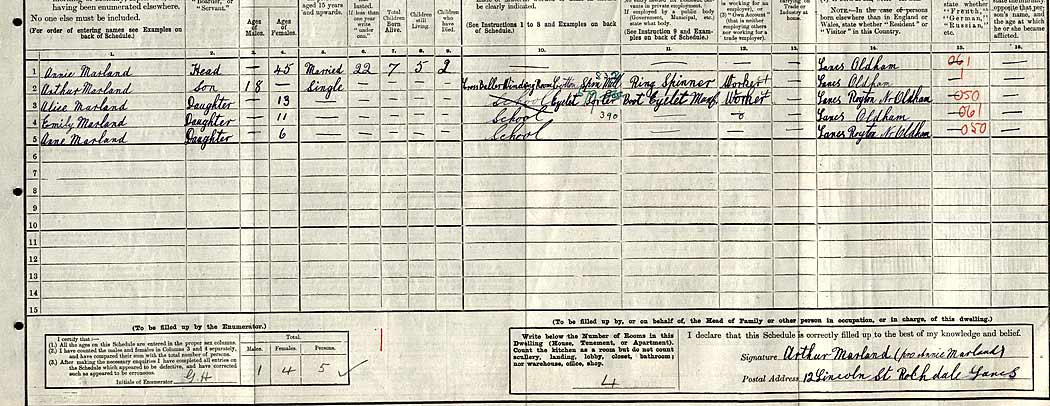 having been enumerated elsewhere.
No one else must be included.
(For order of entering names see Examples on back of Schedule.)
"Boarder," or "Servant."
Ages of Males.
Ages of Females.
aged 15 years and upwards.
lasted.
(If less than one year write "under one."
Total Children Born Alive.
Children still
Children who have Died.
(See Instructions 1 to 8 and Examples on back of Schedule.)
be clearly indicated.
in private employment.
If employed by a public body (Government, Municipal, etc.) state what body.
(See Instruction 9 and Examples on back of Schedule.)
is working for an employer), or
(3) "Own Account" (that is neither employing others nor working for a trade employer).
carrying on Trade or Industry at home.
NOTE.—In the case of persons born elsewhere than in England or Wales, state whether "Resident" or "Visitor" in this Country.
state whether "French," "German," "Russian," etc.
opposite that person's name, and the age at which he or she became afflicted.
1. 2. 3. 4. 5. 6. 7. 8. 9. 10. 11. 12. 13. 14. 15. 16.
1 Annie Marland Head — 45 Married 22 7 5 2 — — — — Lancs Oldham 061 —
2 Arthur Marland Son 18 — Single — — — — Winding Room Cotton Spin Mill Ring Spinner Worker — Lancs Oldham — —
3 Alice Marland Daughter — 13 — — — — — School Eyelet Sorter Boot Eyelet Worker — Lancs Royton Nr Oldham 050 —
4 Emily Marland Daughter — 11 — — — — — School 390 — — Lancs Oldham 061 —
5 Anne Marland Daughter — 6 — — — — — School — — — Lancs Royton Nr Oldham 050 —
6
7
8
9
10
11
12
13
14
15
(To be filled up by the Enumerator.)
I certify that:—
(1.) All the ages on this Schedule are entered in the proper sex columns.
(2.) I have counted the males and females in Columns 3 and 4 separately, and have compared their sum with the total number of persons.
(3.) After making the necessary enquiries I have completed all entries on the Schedule which appeared to be defective, and have corrected such as appeared to be erroneous.
Initials of Enumerator G.H
Males. Females. Persons.
1 4 5
Write below the Number of Rooms in this Dwelling (House, Tenement, or Apartment). Count the kitchen as a room but do not count scullery, landing, lobby, closet, bathroom; nor warehouse, office, shop.
4
(To be filled up by, or on behalf of, the Head of Family or other person in occupation, or in charge, of this dwelling.)
I declare that this Schedule is correctly filled up to the best of my knowledge and belief.
Signature Arthur Marland (pro Annie Marland)
Postal Address 12 Lincoln St Rochdale Lancs